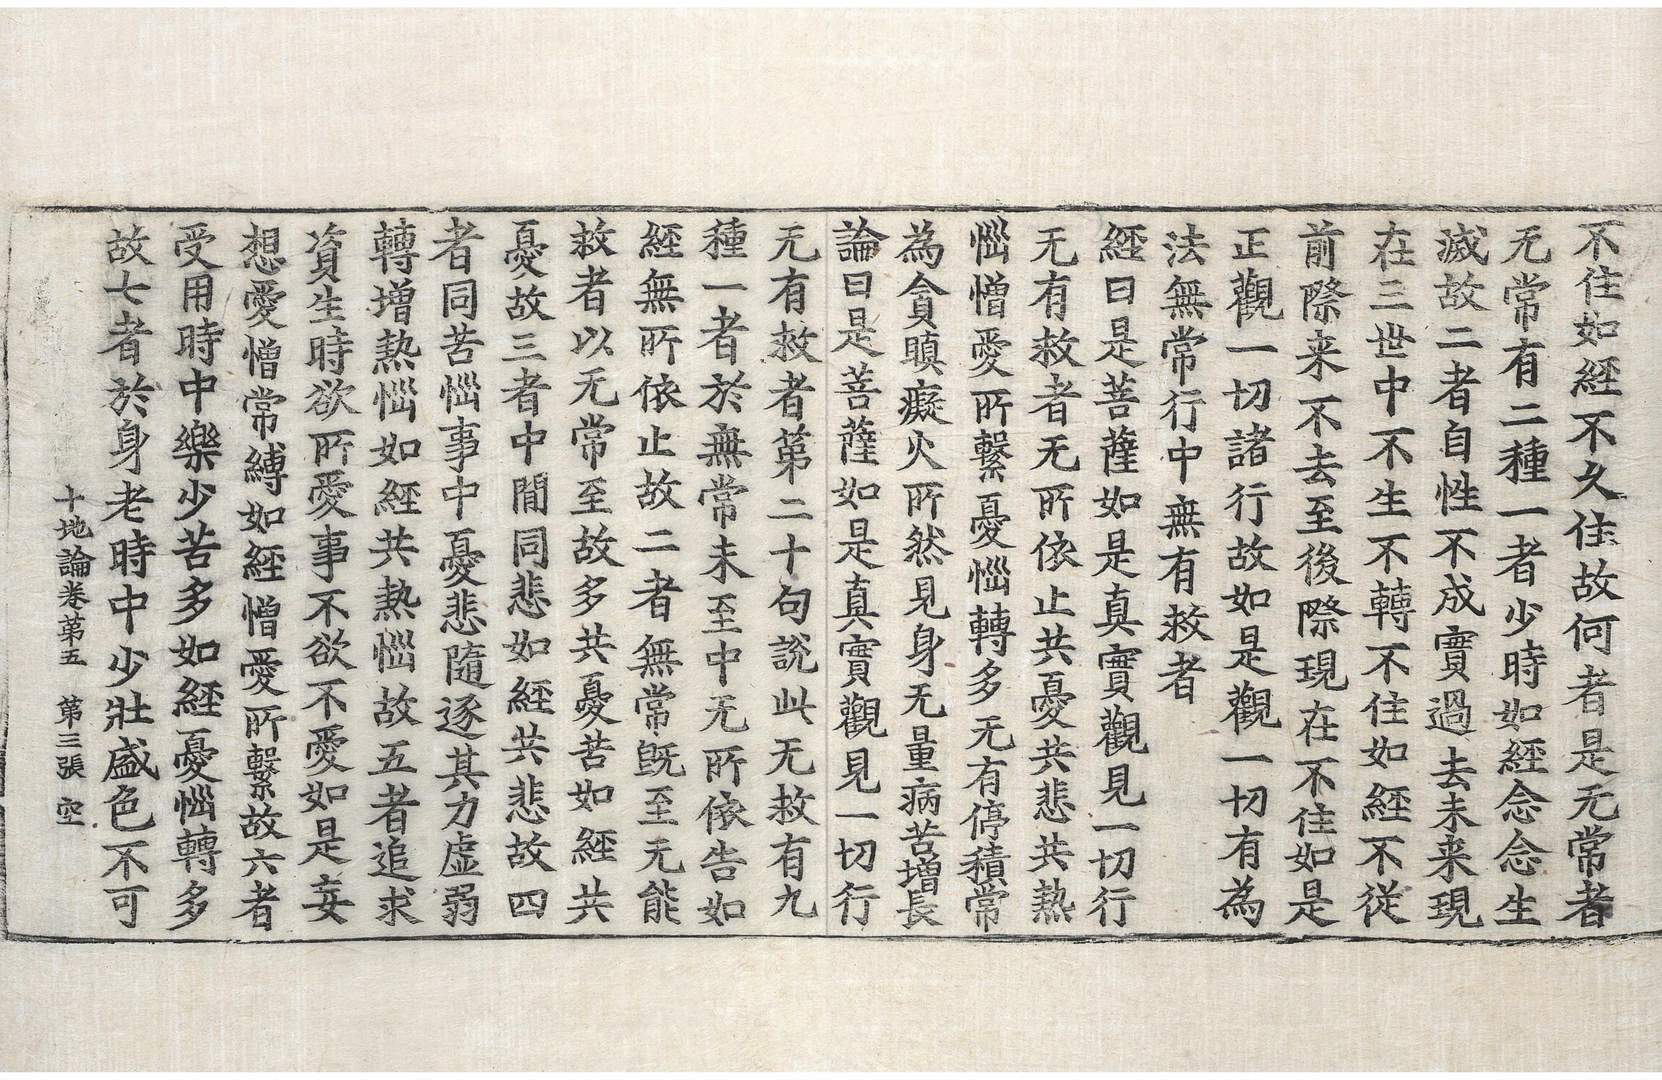 不住如經不久住故何者是无常者
无常有二種一者少時如經念念生
滅故二者自性不成實過去未来現
在三世中不生不轉不住如經不從
前際来不去至後際現在不住如是
正觀一切諸行故如是觀一切有為
法無常行中無有救者
經曰是菩薩如是真實觀見一切行
无有救者无所依止共憂共悲共熱
惱憎愛所繫憂惱轉多无有停積常
為貪瞋癡火所然見身无量病苦增長
論曰是菩薩如是真實觀見一切行
无有救者第二十句說此无救有九
種一者於無常未至中无所依告如
經無所依止故二者無常既至无能
救者以无常至故多共憂苦如經共
憂故三者中間同悲如經共悲故四
者同苦惱事中憂悲隨逐其力虛弱
轉增熱惱如經共熱惱故五者追求
資生時欲所愛事不欲不愛如是妄
想愛憎常縛如經憎愛所繫故六者
受用時中樂少苦多如經憂惱轉多
故七者於身老時中少壯盛色不可
十地論卷第五　第三張　空